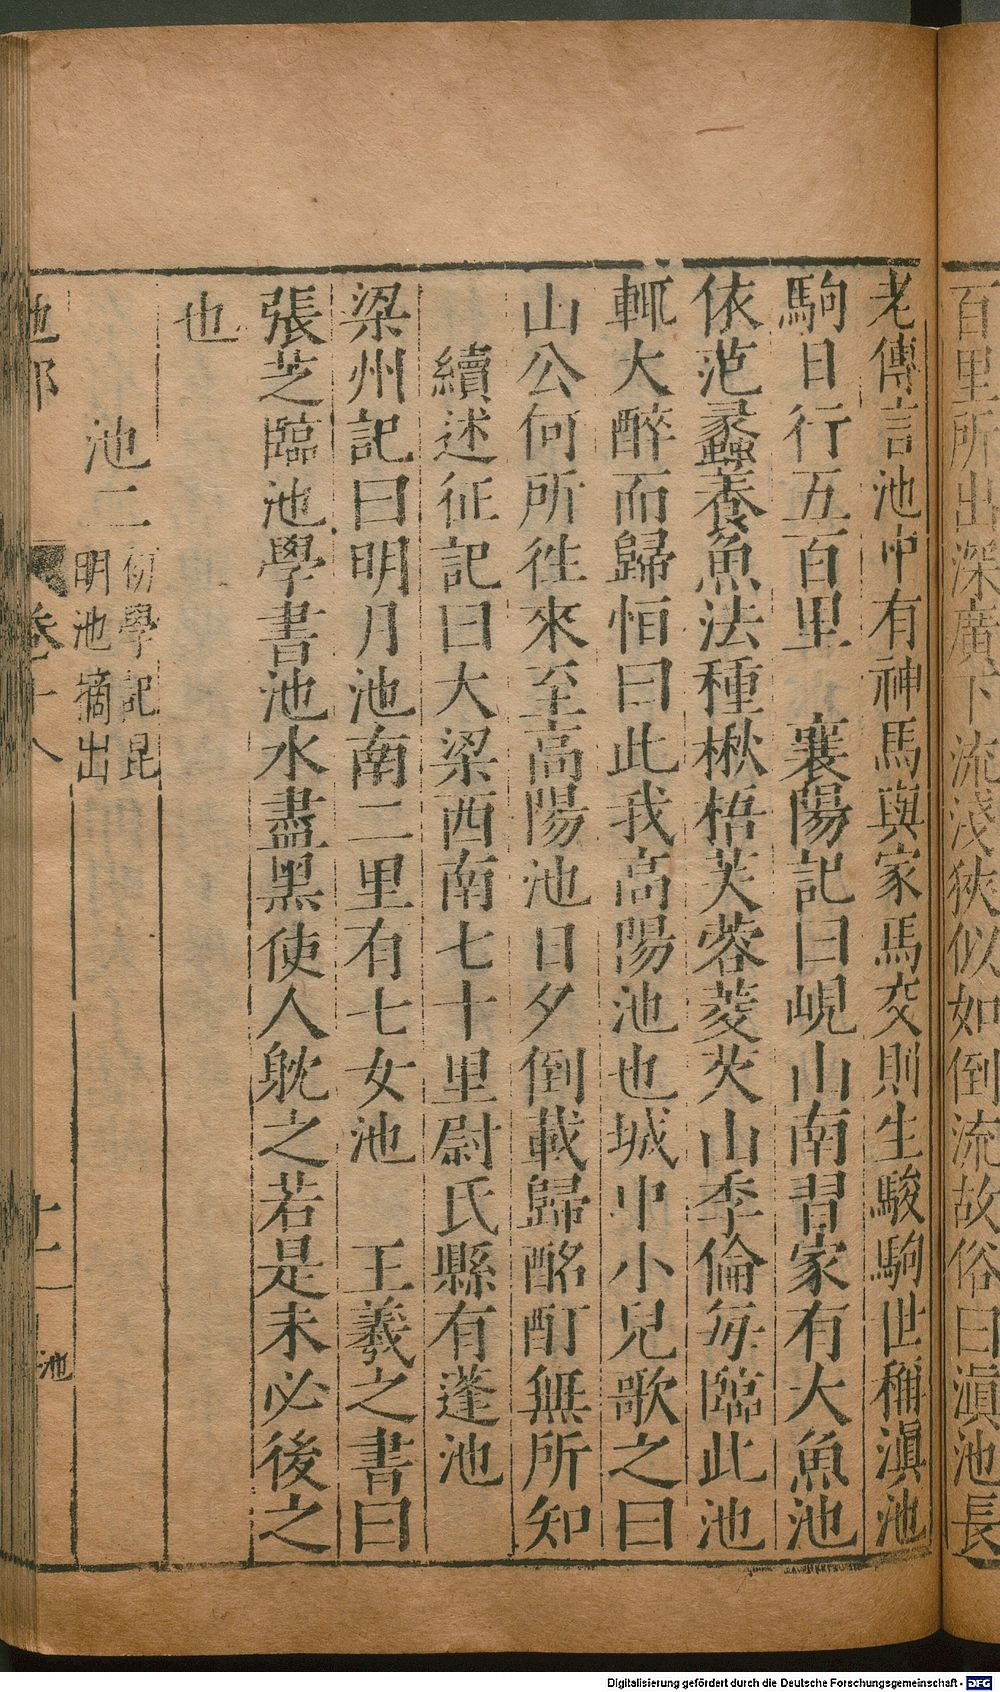 百里所出深廣下流淺狹似如倒流故俗曰滇池長
老傳言池中有神馬與家馬交則生駿駒世稱滇池
駒日行五百里　襄陽記曰峴山南習家有大魚池
依范蠡養魚法種楸梧芙蓉菱芡山季倫每臨此池
輒大醉而歸恒曰此我高陽池也城中小兒歌之曰
山公何所徃來至高陽池日夕倒載歸酩酊無所知
續述征記曰大梁西南七十里尉氏縣有蓬池
梁州記曰明月池南二里有七女池　王羲之書曰
張芝臨池學書池水盡黑使人躭之若是未必後之
也
池二
初學記昆
明池摘出
池
Digitalisierung gefördert durch die Deutsche Forschungsgemeinschaft - DFG